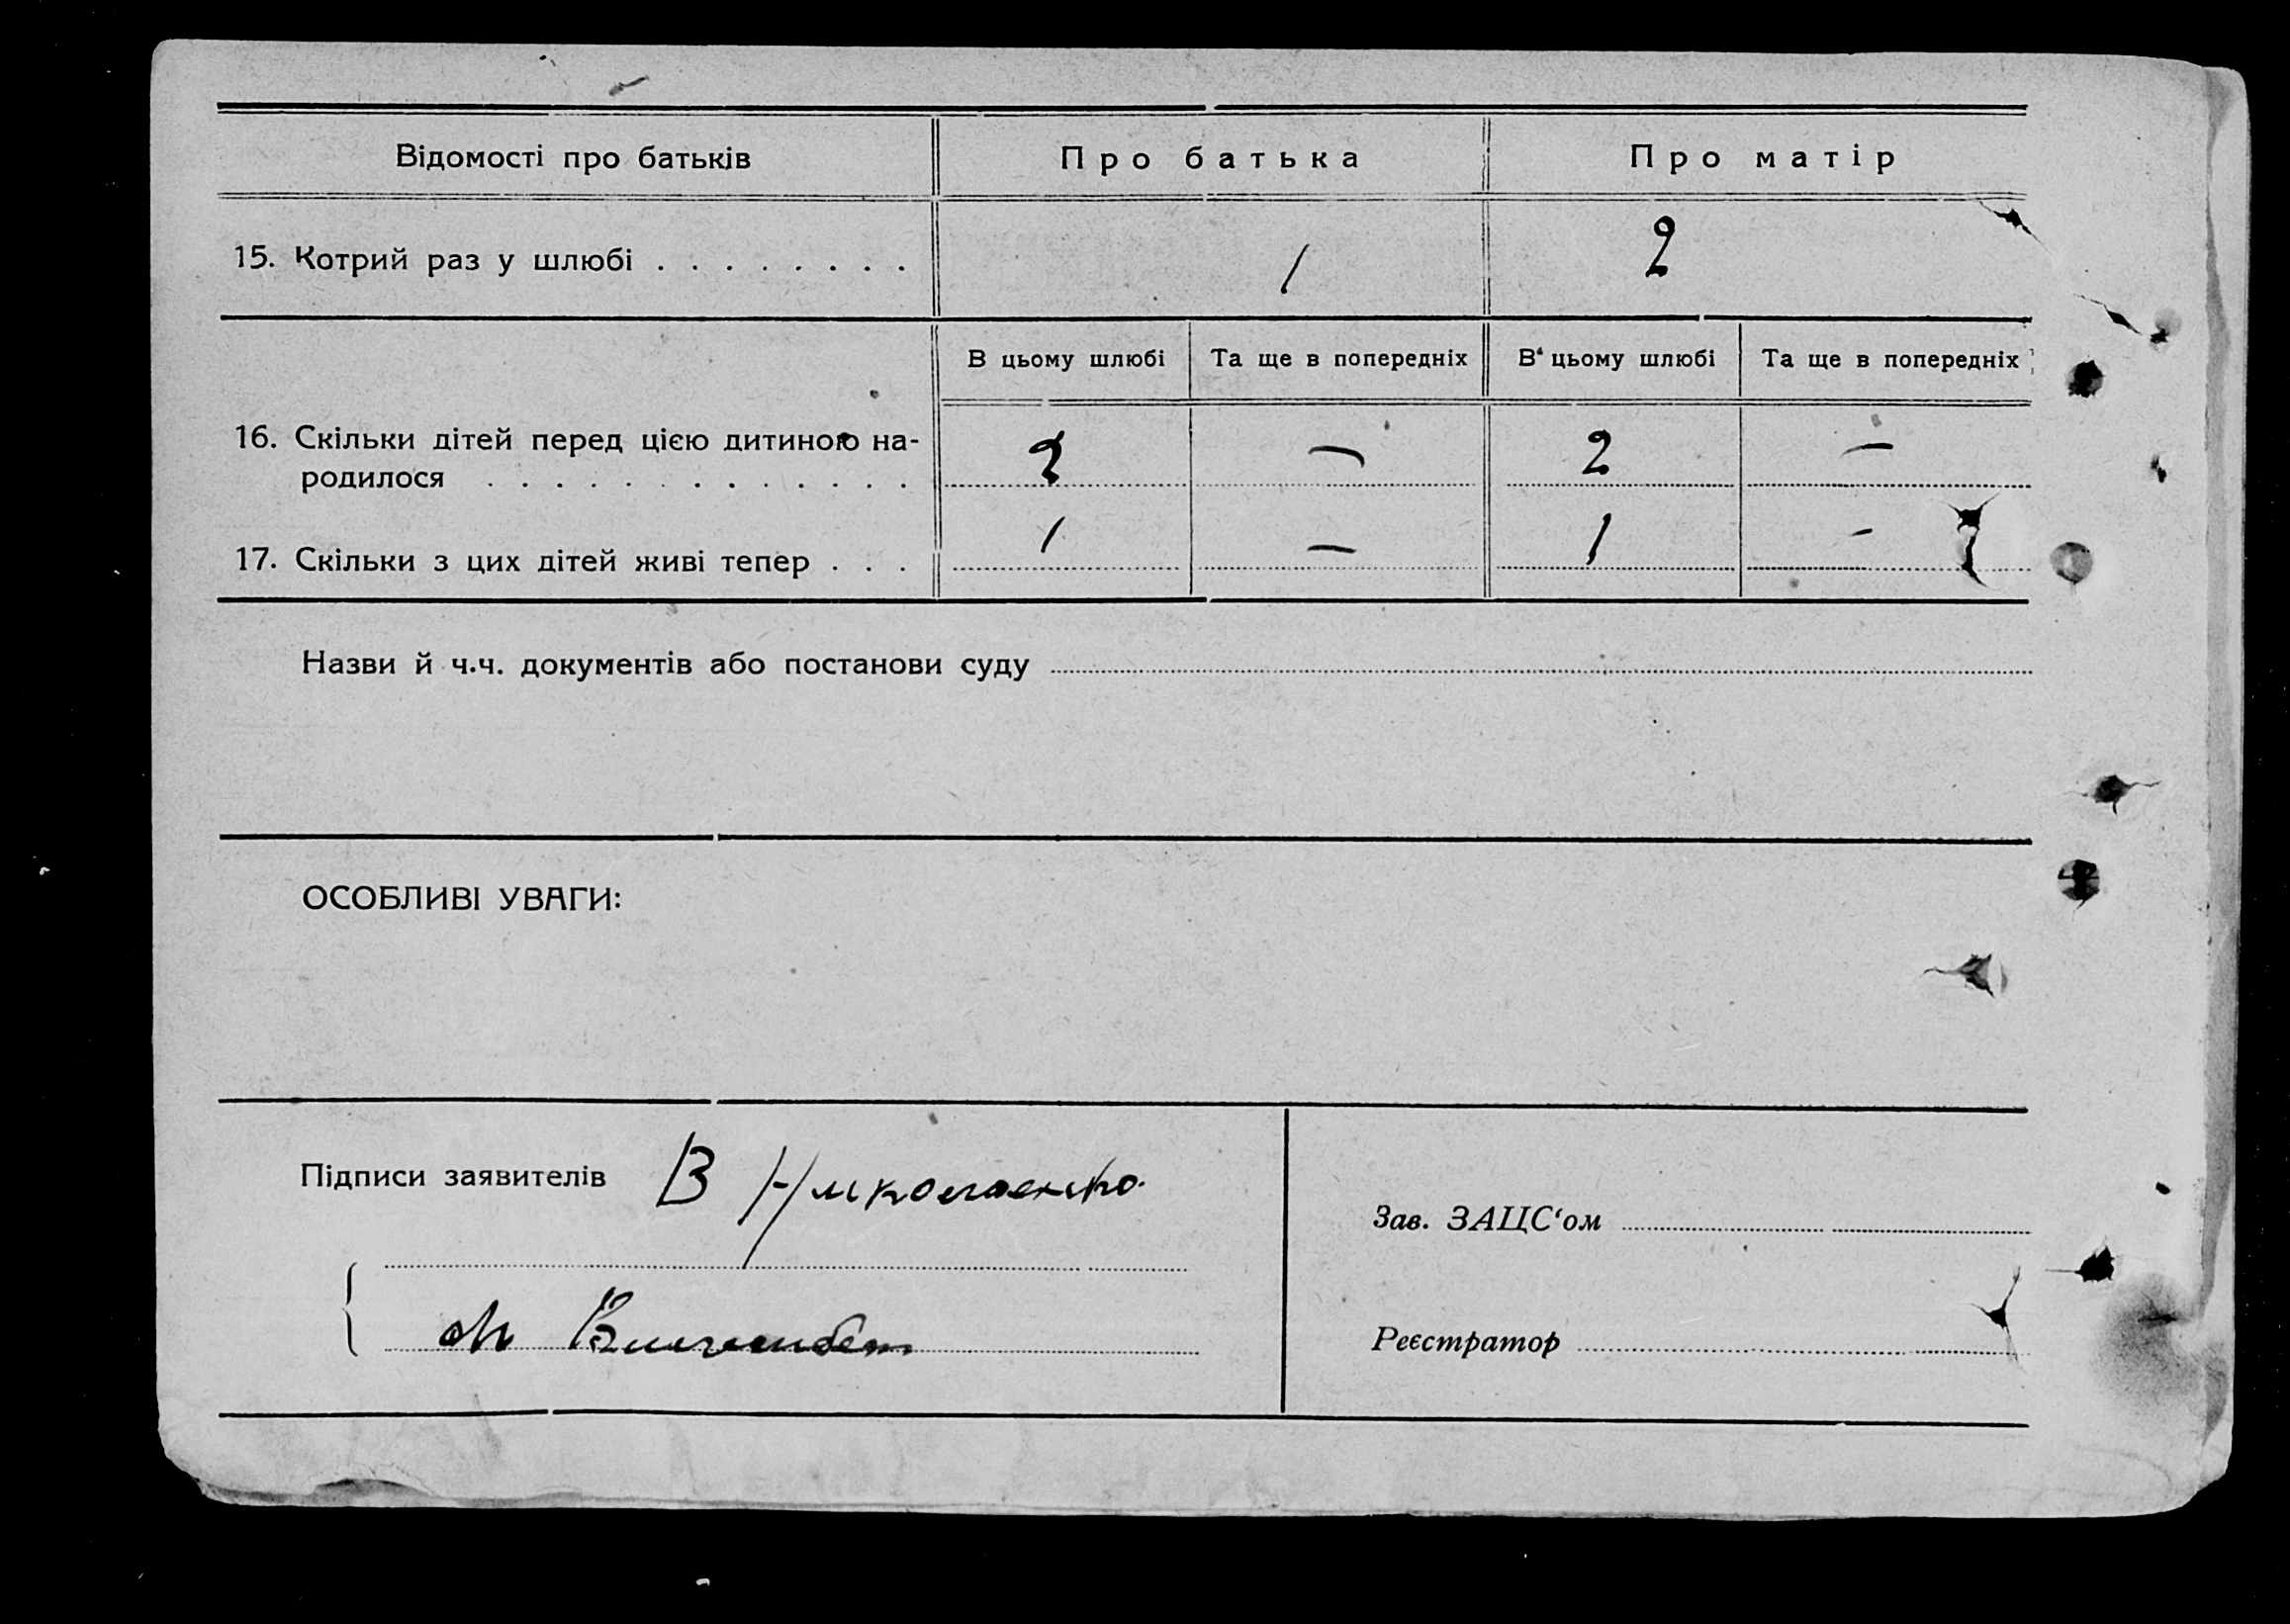 Відомості про батьків Про батька Про матір
15. Котрий раз у шлюбі . . . . . . . . 1 2
В цьому шлюбі Та ще в попередніх В цьому шлюбі Та ще в попередніх
16. Скільки дітей перед цією дитиною на-
родилося . . . . . . . . . . . . . 2 — 2 —
17. Скільки з цих дітей живі тепер . . . 1 — 1 -
Назви й ч.ч. документів або постанови суду
ОСОБЛИВІ УВАГИ:
Підписи заявителів В Николаенко
Зав. ЗАЦС‘ом
М
Реєстратор